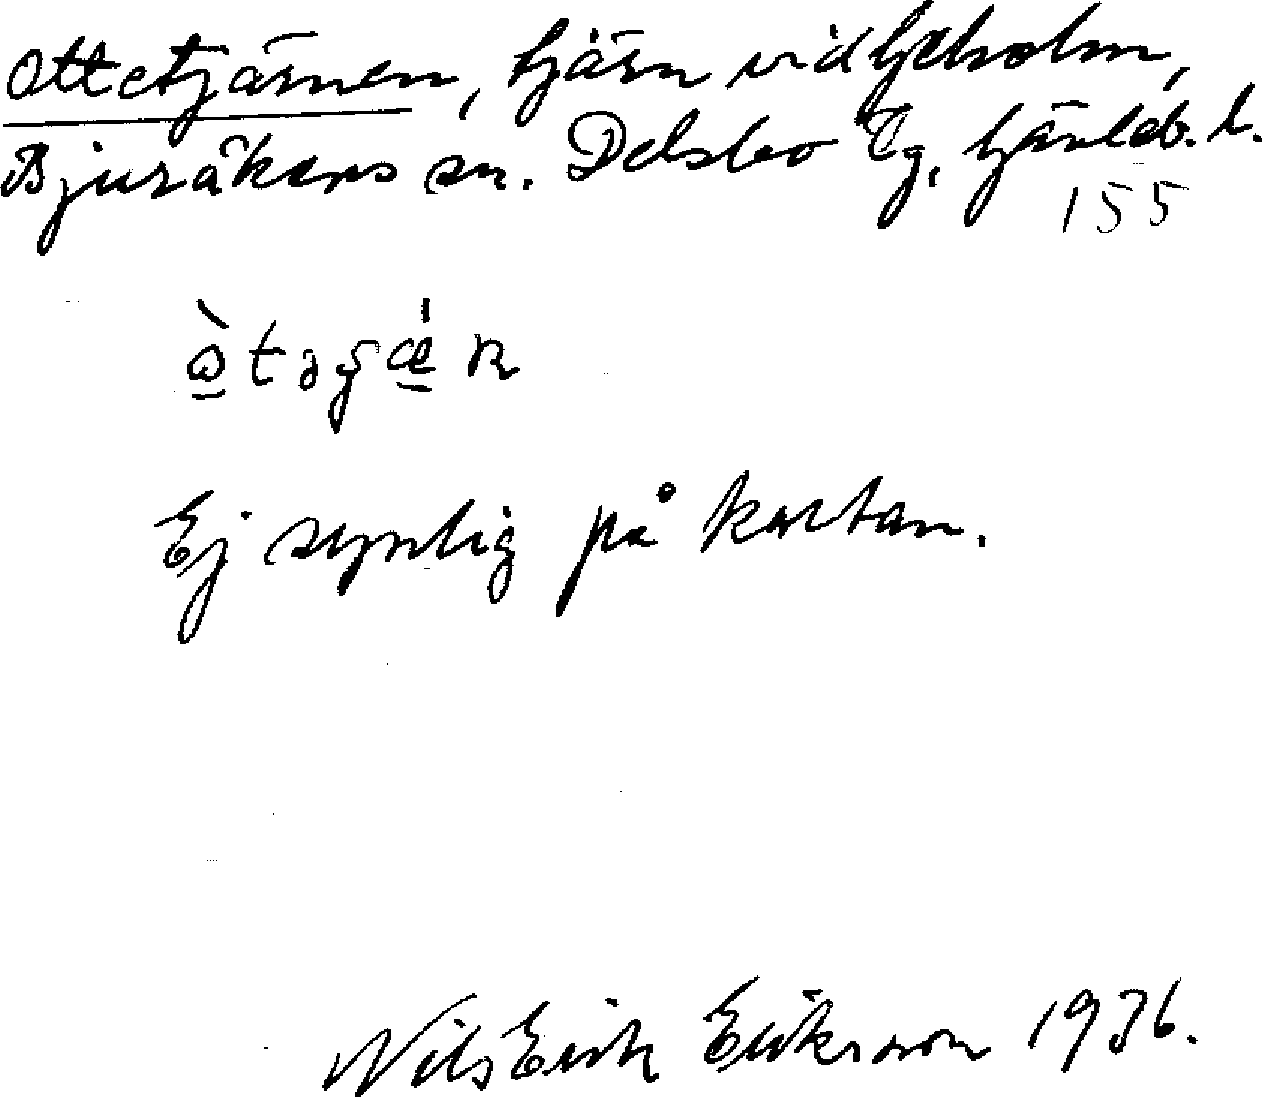 Ottetjärnen, tjärn vid Ljtholm,
Bjuråkers sn. Delsbo tg, Gävleb. l.
155
Ej synlig på kartan.
Nils Erik Eriksson 1936.